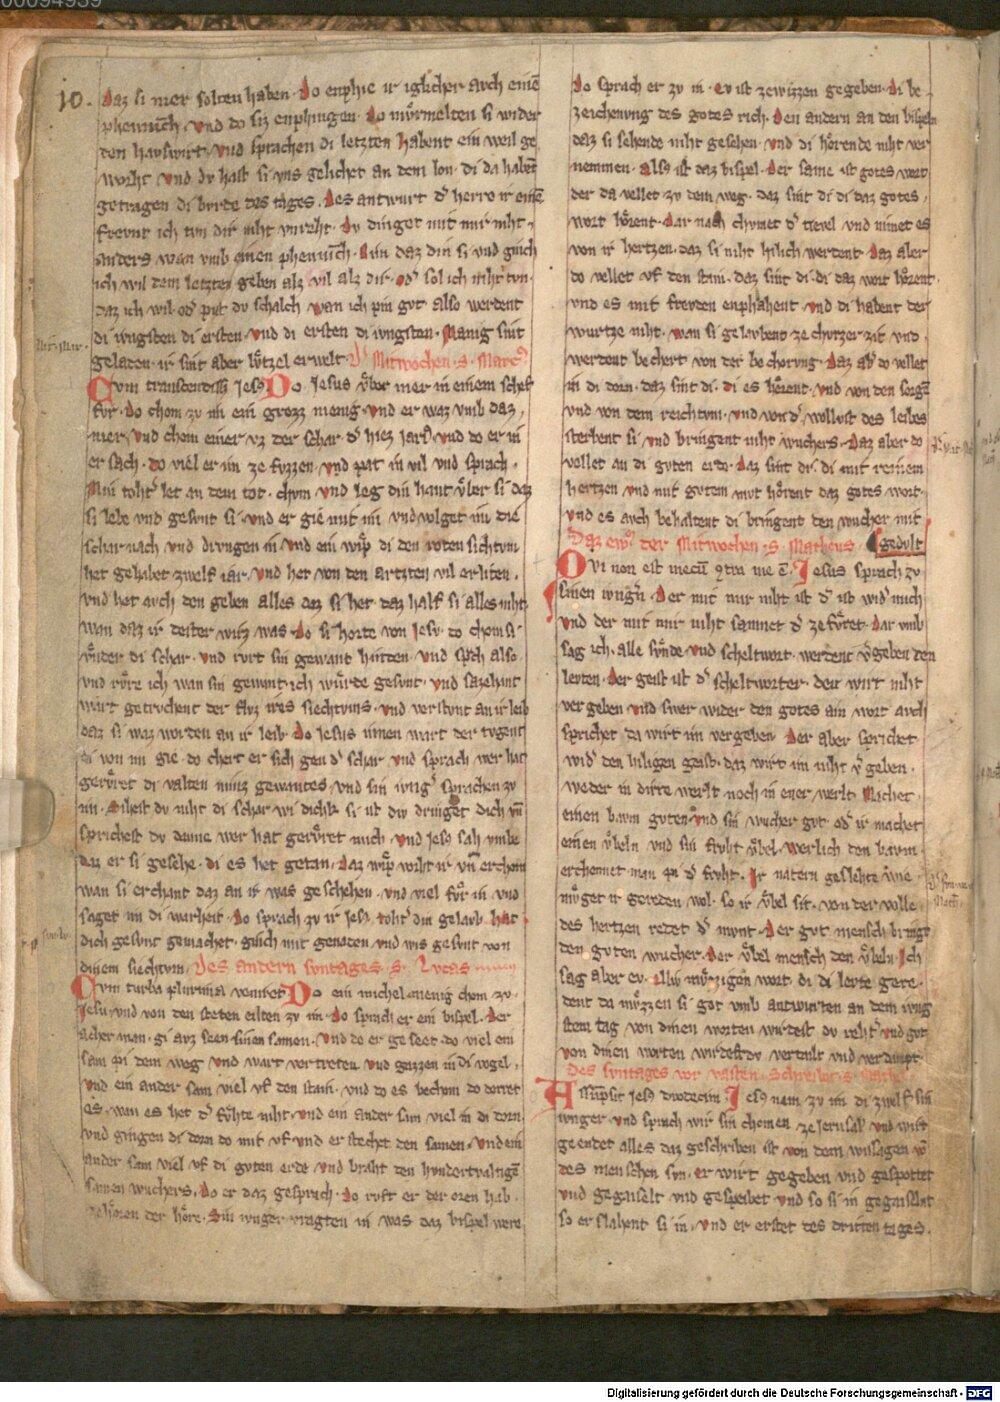 10.
daz si mer solten haben. do enphie ir iglicher auch einē
phenninch. Vnd do siz enphingen. do mvͤrmelten si wider
den hauswirt. vnd sprachen di letzten habent ein weil ge
worht vnd dv hast si vns gelichet an dem lon. di da habēt
getragen di bvrde des tages. des antwurt dˢ herre ir einē
frevnt ich tvn dir niht vnreht. Dv dinget mit mir niht
anders wan vmb einen phenninch. Nim daz din si vnd ginch
ich wil dem letzten geben als vil als dir. odˢ sol ich niht tvn.
daz ich wil. odˢ pist dv schalch wan ich pin gvt also werdent
di ivngsten di ersten. vnd di ersten di ivngsten. Manig sint
geladen. ir sint aber lvͤtzel erwelt. Mitwochen. S. Marcˢ
Cvm transcendissˢ Jesˢ Do Jesus vͤber mer in einem schef
fvr. do chom zv im ein grozz menig. vnd er waz vmb daz
mer. vnd chom einer vz der schar. dˢ hiez Jarsˢ. vnd do er in
er sach. do viel er im ze fvzzen. vnd pat in vil vnd sprach.
Min tohtˢ let an dem tot. chvm vnd leg din hant vͤber si daz
si lebe vnd gesvnt si. vnd er gie mit im vnd volget im die
schar nach vnd drvngen in. vnd ein wip di den roten sichtvm
het gehabet zwelf iar. vnd het von den artzten vil erliten.
vnd het auch den geben alles daz si het. daz half si alles niht.
wan daz ir dester wirs was. do si horte von Jesv. do chom si
vnder di schar. vnd rvrt sin gewant hinden. vnd sprach also
vnd rvͤre ich wan sin gewant. ich wvͤrde gesvnt. vnd sazehant
wart getrvchent der flvz ires siechtvms. vnd verstvnt an ir leib
daz si waz worden an ir leib. do Jesus innen wart der tvgent
di von im gie. do chert er sich gen dˢ schar vnd sprach wer hat
gervͤret di valten mins gewantes. vnd sin ivngˢ sprachen zv
im. Sihest dv niht di schar wi dichk si ist div dringet dich vn̄
sprichest dv denne wer hat gervͤret mich. vnd Jesˢ sah vmbe
daz er si gesehe. di es het getan. daz wip vorht ir vn̄ erchom
wan si erchant daz an ir was geschehen. vnd viel fvͤr in vnd
saget im di warheit. do sprach zv ir Jesˢ. tohtˢ din gelavb hat
dich gesvnt gemachet. ginch mit genaden vnd wis gesvnt von
dinem siechtvm. Des andern svntages. S. Lvcas
Cvm turba plurima venisset Do ein michel menig chom zv
Jesu. vnd von den steten eilten zv im. do sprach er ein bispel. der
acher man. gi avz seen sinen samen. vnd do er geseet. do viel ein
sam pi dem weg vnd wart vertreten. vnd gazzen in di vogel.
vnd ein ander sam viel vf den stain. vnd do es bechom do dorret
es. wan es het dˢ fvͤhte niht. vnd ein ander sam viel in di dorn
vnd gingen di dorn do mit vf vnd erstechet den samen. vnd ein
ander sam viel vf di gvten erde. vnd braht den hvndertvaltigē
samen wuchers. do er daz gesprach. do rvft er der oren hab.
zehoͤren der hoͤre. Sin iunger vragten in was daz bispel were
do sprach er zv in. ev ist ze wizzen gegeben. di be
zeichenvng des gotes rich. den andern an den bispeln
daz si sehende niht gesehen. vnd di hoͤrende niht ver
nemmen. also ist daz bispel. der same ist gotes wort
der da vellet zv dem weg. daz sint di di daz gotes
wort hoͤrent. dar nach chvmet dˢ tievel vnd nimet es
von ir hertzen. daz si niht hilich werdent. daz aber
do vellet vf den stain. daz sint di. di daz wort hoͤrent.
vnd es mit frevden enphahent vnd di habent der
wurtze niht. wan si gelavbent ze chvrzer zit vnd
werdent bechert von der bechorvng. daz abˢ do vellet
in di dorn. daz sint di. di es hoͤrent. vnd von den sorgē
vnd von dem reichtvm. vnd von dˢ wollvst des leibes
sterbent si vnd bringent niht wuchers. daz aber do
vellet an di gvten erde. daz sint di. di mit reinem
hertzen vnd mit gvtem mvt hoͤrent daz gotes wort.
vnd es auch behaltent di bringent den wucher mit
gedvlt
Daz ewˢ der Mitwochen. S. Matheus.
Qvi non est mecū 9tra me ē. Jesus sprach zv
sinen ivngˢn. der mit mir niht ist dˢ ist widˢ mich
vnd der mit mir niht samnet dˢ zefvͤret. dar vmb
sag ich. alle svͤnde vnd scheltwort. werdent vˢgeben den
levten. der geist ist dˢ scheltworter. dem wirt niht
vergeben vnd swer wider den gotes ain wort auch
sprichet da wirt im vergeben. der aber sprichet
widˢ den hiligen geist. daz wirt im niht vˢgeben.
weder in dirre werlt noch in ener werlt. Machet
einen bavm gvten. vnd sin wucher gvt. odˢ ir machet
einen vͤbeln vnd sin frvht vͤbel. werlich den bavm
erchennet man pi dˢ frvht. Ir natern geslehte wie
mvͤget ir gereden wol. so ir vͤbel sit. von der volle
des hertzen redet dˢ mvnt. der gvt mensch bringt
den gvten wucher. der vͤbel mensch den vͤbeln. Ich
sag aber ev. allev mvͤzzigev wort. di di levte gere
dent da mvͤzzen si got vmb antwurten an dem ivng
stem tag von dinen worten wirdest dv rehtˢ vnd gvt
von dinen worten wirdest dv vertailt vnd verdampt.
Des svntages vor vasten. Schreibet S. Mathe
Assūpsit Jesˢ dvodecim. Jesˢ nam zv im di zwelf sin
ivnger. vnd sprach wir sin chomen ze Jerusalˢ vnd wirt
geendet alles daz geschriben ist von dem wissagen vō
des menschen svn. er wirt gegeben vnd gespottet
vnd gegaiselt vnd gespeibet vnd so si in gegaiselnt
so erslahent si in. vnd er erstet des dritten tages.
Digitalisierung gefördert durch die Deutsche Forschungsgemeinschaft - DFG